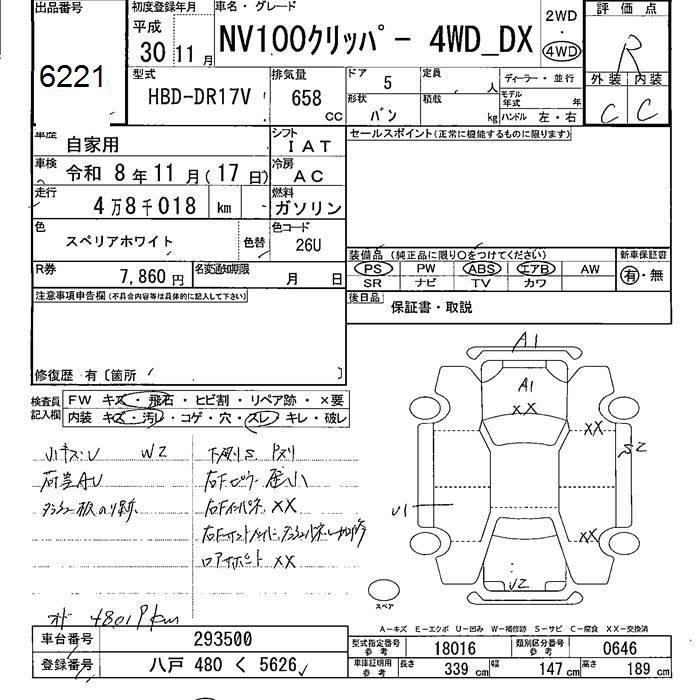 出品番号
6221
初度登録年月
平成
30年11月
車名・グレード
NV100クリッパー 4WD_DX
2WD
・
4WD
評価点
R
外装 内装
C C
型式
HBD-DR17V
排気量
658
CC
ドア 5
定員 人
ディーラー・並行
形状 バン
積載 kg
モデル年式 年
ハンドル 左・右
車歴 自家用
シフト IAT
セールスポイント(正常に機能するものに限ります)
車検 令和 8年11月(17日)
冷房 AC
走行 4万8千018 km
燃料 ガソリン
色 スペリアホワイト
色替
色コード 26U
装備品 (純正品に限り○をつけてください)
新車保証書
PS PW ABS エアB AW
有・無
SR ナビ TV カワ
R券 7,860円
名変通知期限 月 日
後日品 保証書・取説
注意事項申告欄(不具合内容等は具体的に記入して下さい)
修復歴 有〔箇所 〕
検査員記入欄
FW キズ・飛石・ヒビ割・リペア跡・×要
内装 キズ・汚レ・コゲ・穴・スレ・キレ・破レ
小キズ・U W2
荷室AU
下廻りS
XX
XX
A1
A1
XX
XX
S2
U1
XX
U2
スペア
A-キズ E-エクボ U-凹み W-補修跡 S-サビ C-腐食 XX-交換済
車台番号 293500
登録番号 八戸 480 く 5626
型式指定番号 参考 18016
類別区分番号 参考 0646
車庫証明用 参考
長さ 339 cm
幅 147 cm
高さ 189 cm